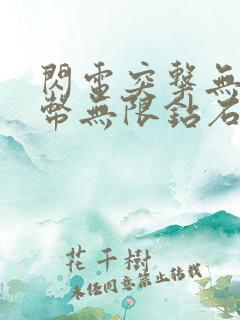 閃電突擊無
幣無限鉆石
花千樹
未經同意禁止轉載